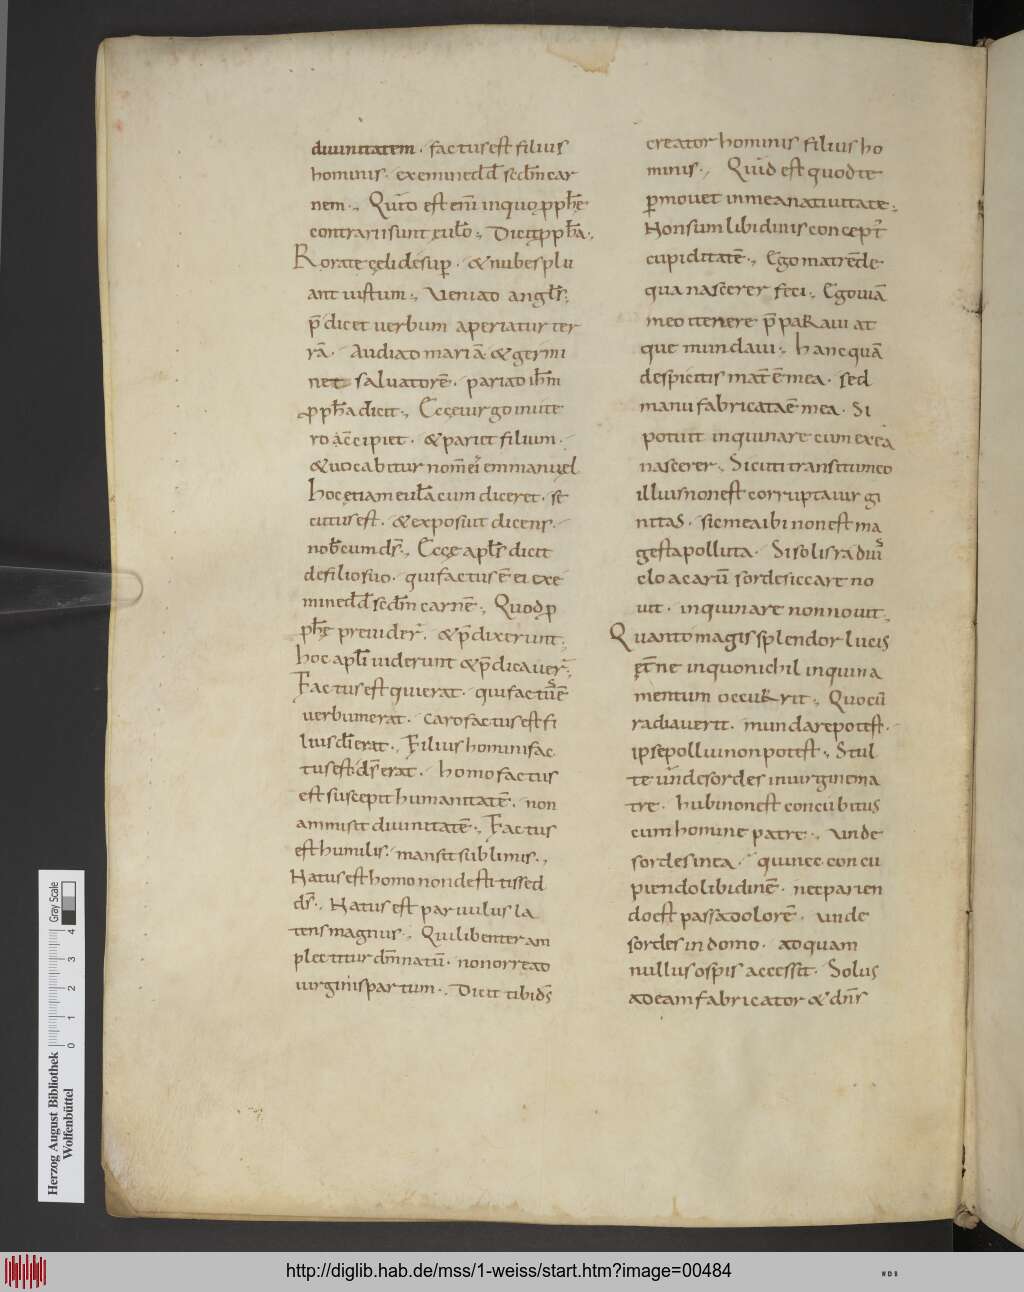 diuinitatem · factus est filius
hominis · ex semine dd̄ scdm̄ car
nem ·, Quiło est enī in quo ꝓph̄ę
contrarii sunt euło ·, Dicit ꝓph̄a ·,
Rorate cęli desup̄ · & nubes plu
ant iustum ·, Ueniad angl̄s ·,
p̄dicet uerbum aperiatur ter
rā · Audiad mariā & germi
net saluatorē · pariad ih̄m
ꝓph̄a dicit ·, Ecce uirgo in ute
ro accipiet · & pariet filium ·
& uocabitur nom̄ ei' emmanuel
hoc etiam eułā cum diceret · se
cutus est · & exposuit dicens ·
nob̄cum dr̄s ·, Ecce apl̄s dicit
de filio suo · qui factus ē ei ex se
mine dd̄ scdm̄ carnē ·, Quod ꝓ
ph̄ę preuider̄ · & p̄dixerunt ·,
hoc apl̄i uiderunt & p̄dicauer̄ ·,
Factus est qui erat · qui factus ē
uerbum erat · caro factus est fi
lius dī erat ·, Filius hominis fac
tus est · dr̄s erat · homo factus
est suscepit humanitatē · non
ammisit diuinitatē ·, Factus
est humilis · mansit sublimis ·,
Natus est homo non destitit esse d
dr̄s ·, Natus est paruulus la
tens magnus ·, Qui libenter am
plectitur dm̄ natū · non orread
uirginis partum ·, Dicit tibi dr̄s
creator hominis filius ho
minis ·, Quid est quod te
ꝑmouet in mea natiuitate ·,
Non sum libidinis concept'
cupiditatē ·, Ego matrē de
qua nascerer feci ·, Ego uiā
meo itenere p̄paraui at
que mundaui ·, hanc quā
despicitis mat̄ ē mea · sed
manu fabricata ē mea · Si
potuit inquinare cum ex ea
nascerer ·, Sicuti transitu meo
illuis non est corrupta uirgi
nitas · sic mea ibi non est ma
gesta polluta · Si solis radius
cęlo acarū sordes siccare no
uit · inquinare non nouit ·,
Quanto magis splendor lucis
ęt̄ne in quo nichil inquina
mentum occurrit ·, Quocū
radiauerit · mundare potest ·
ipse pollui non potest ·, Stul
te unde sordes in uirgine ma
tre · hubi non est concubitus
cum homine patre ·, unde
sordes in ea · qui nec concu
piendo libidinē · nec parien
do est passa dolorē · unde
sordes in domo · ad quam
nullus ospis accessit · Solus
ad eam fabricator & dn̄s
Herzog August Bibliothek
Wolfenbüttel
0 1 2 3 4
Gray Scale
http://diglib.hab.de/mss/1-weiss/start.htm?image=00484